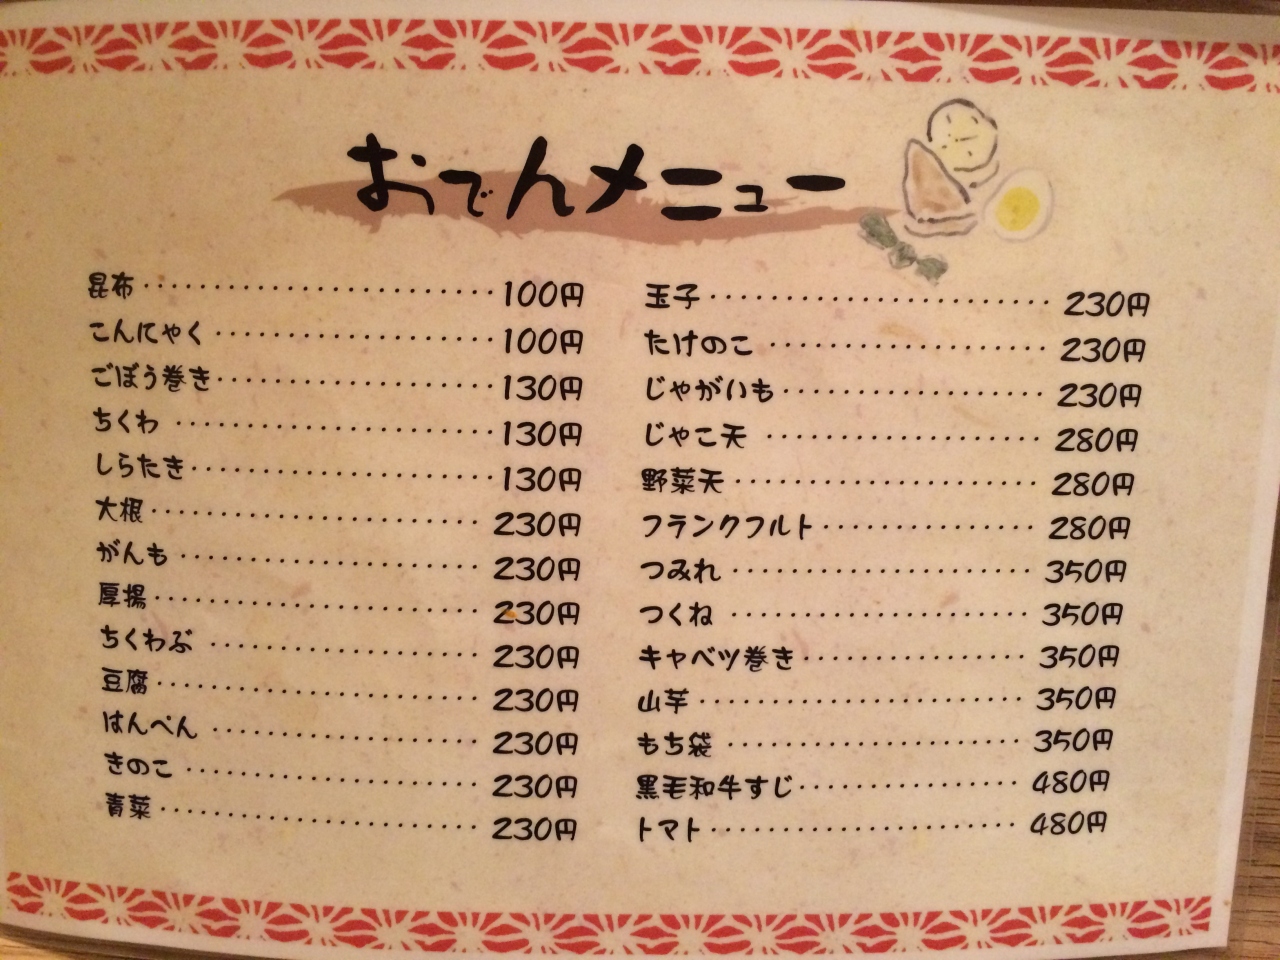 おでんメニュー
昆布 100円
こんにゃく 100円
ごぼう巻き 130円
ちくわ 130円
しらたき 130円
大根 230円
がんも 230円
厚揚 230円
ちくわぶ 230円
豆腐 230円
はんぺん 230円
きのこ 230円
青菜 230円
玉子 230円
たけのこ 230円
じゃがいも 230円
じゃこ天 280円
野菜天 280円
フランクフルト 280円
つみれ 350円
つくね 350円
キャベツ巻き 350円
山芋 350円
もち袋 350円
黒毛和牛すじ 480円
トマト 480円